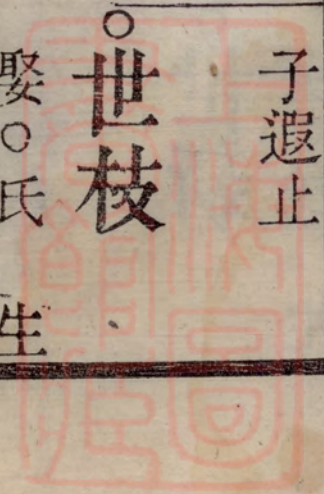 子遐止
○世枝
娶○氏　生